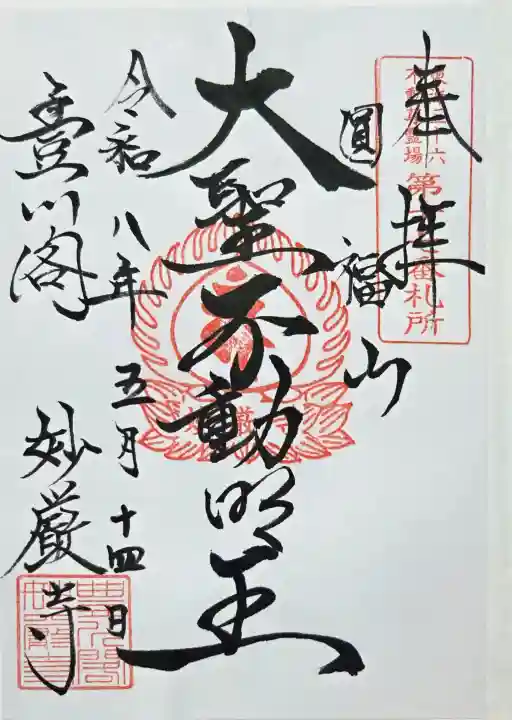 奉拝
圓福山
大聖不動明王
令和八年五月十四日
豊川閣
妙厳寺
不動尊霊場
番札所